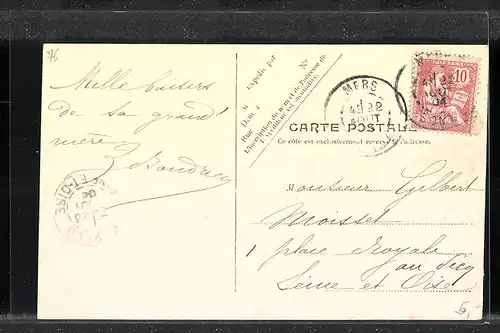 76
Mille baisers
de sa grand'
mère
Expédié par
M
Rue
N°
L'inscription du nom et de l'adresse de
l'expéditeur est facultative.
MERS
22
AOUT
10
04
CARTE POSTALE
Ce côté est exclusivement réservé à l'adresse.
Monsieur Gilbert
Moisset
1 place Royale
au Pecq
Seine et Oise
ET-OISE